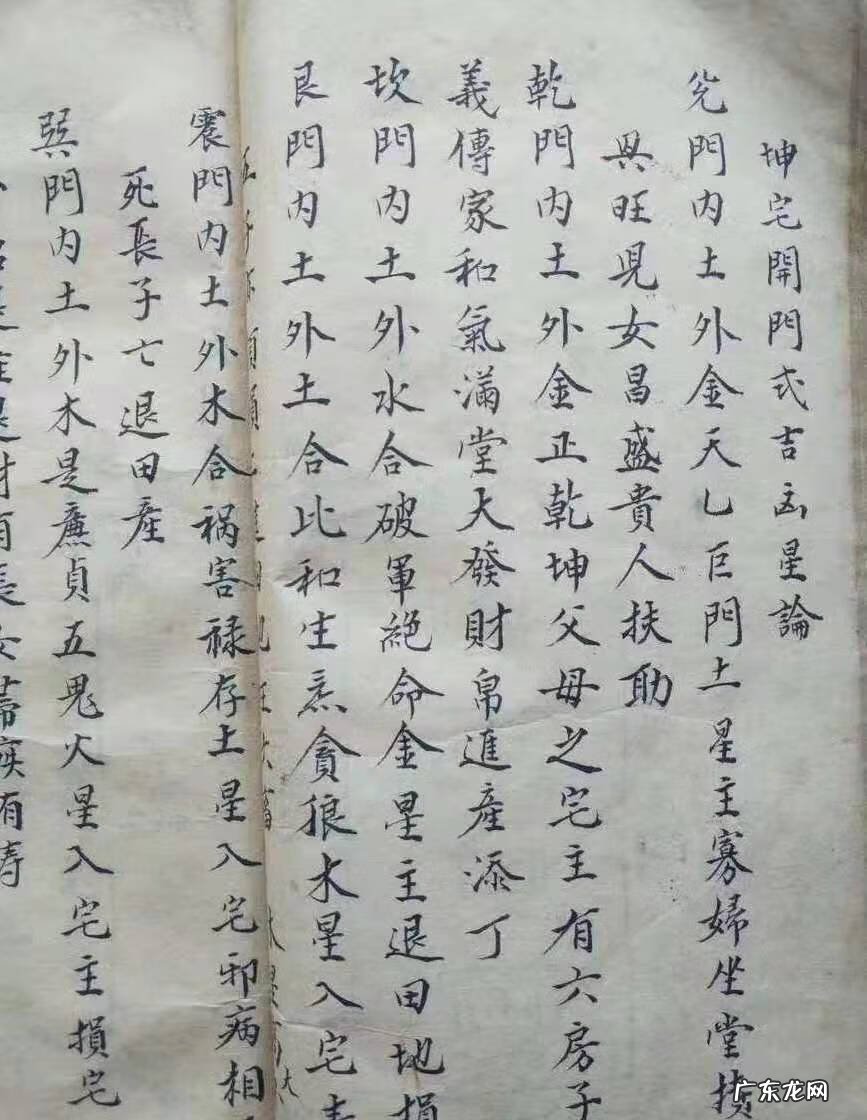 坤宅開門式吉凶星論
兌門内土外金天乚巨門土星主寡婦坐堂
興旺児女昌盛貴人扶助
乾門内土外金正乾坤父母之宅主有六房子
義傳家和氣滿堂大發財帛進産添丁
坎門内土外水合破軍絶命金星主退田地損
艮門内土外土合比和生炁貪狼木星入宅主
震門内土外木合禍害禄存土星入宅邪病相
死長子亡退田産
巽門内土外木是廉貞五鬼火星入宅主損宅
財有長女帶疾有壽
广东龙网